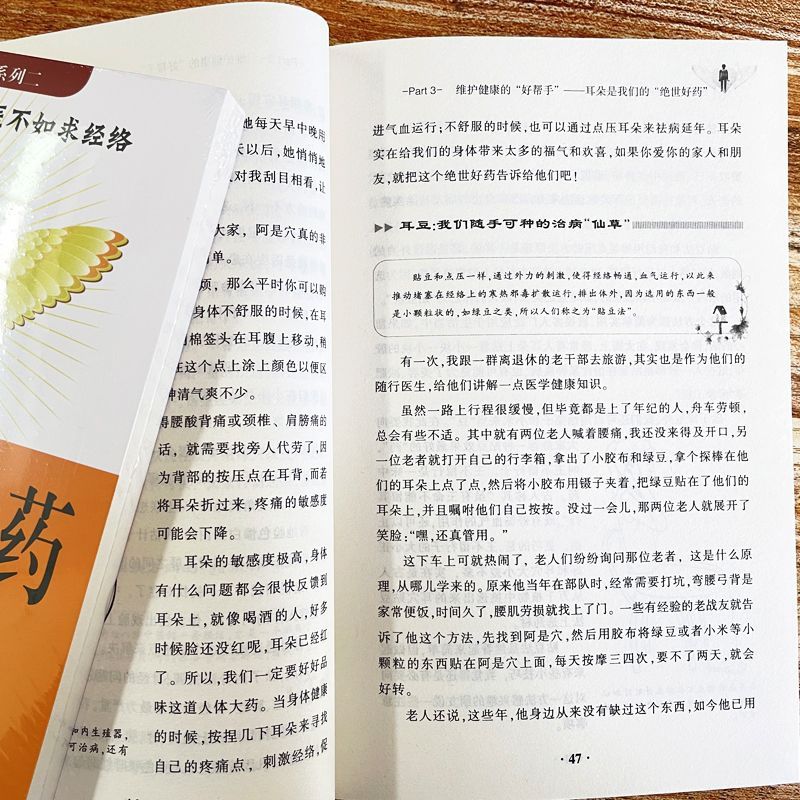 系列二
不如求经络
药
和内生殖器,
可治病,还有
她每天早中晚用
天以后,她悄悄地
对我刮目相看,让
大家,阿是穴真的非
单。
烦,那么平时你可以购
身体不舒服的时候,在耳
棉签头在耳腹上移动,稍
在这个点上涂上颜色以便区
神清气爽不少。
得腰酸背痛或颈椎、肩膀痛的
话,就需要找旁人代劳了,因
为背部的按压点在耳背,而若
将耳朵折过来,疼痛的敏感度
可能会下降。
耳朵的敏感度极高,身体
有什么问题都会很快反馈到
耳朵上,就像喝酒的人,好多
时候脸还没红呢,耳朵已经红
了。所以,我们一定要好好品
味这道人体大药。当身体健康
的时候,按捏几下耳朵来寻找
自己的疼痛点,刺激经络,促
-Part 3- 维护健康的“好帮手”——耳朵是我们的“绝世好药”
进气血运行;不舒服的时候,也可以通过点压耳朵来祛病延年。耳朵
实在给我们的身体带来太多的福气和欢喜,如果你爱你的家人和朋
友,就把这个绝世好药告诉给他们吧!
耳豆:我们随手可种的治病“仙草”
贴豆和点压一样,通过外力的刺激,使得经络畅通,血气运行,以此来
推动堵塞在经络上的寒热邪毒扩散运行,排出体外,因为选用的东西一般
是小颗粒状的,如绿豆之类,所以人们称之为“贴豆法”。
有一次,我跟一群离退休的老干部去旅游,其实也是作为他们的
随行医生,给他们讲解一点医学健康知识。
虽然一路上行程很缓慢,但毕竟都是上了年纪的人,舟车劳顿,
总会有些不适。其中就有两位老人喊着腰痛,我还没来得及开口,另
一位老者就打开自己的行李箱,拿出了小胶布和绿豆,拿个探棒在他
们的耳朵上点了点,然后将小胶布用镊子夹着,把绿豆贴在了他们的
耳朵上,并且嘱咐他们自己按按。没过一会儿,那两位老人就展开了
笑脸:“嘿,还真管用。”
这下车上可就热闹了,老人们纷纷询问那位老者,这是什么原
理,从哪儿学来的。原来他当年在部队时,经常需要打坑,弯腰弓背是
家常便饭,时间久了,腰肌劳损就找上了门。一些有经验的老战友就告
诉了他这个方法,先找到阿是穴,然后用胶布将绿豆或者小米等小
颗粒的东西贴在阿是穴上面,每天按摩三四次,要不了两天,就会
好转。
老人还说,这些年,他身边从来没有缺过这个东西,如今他已用
·47·